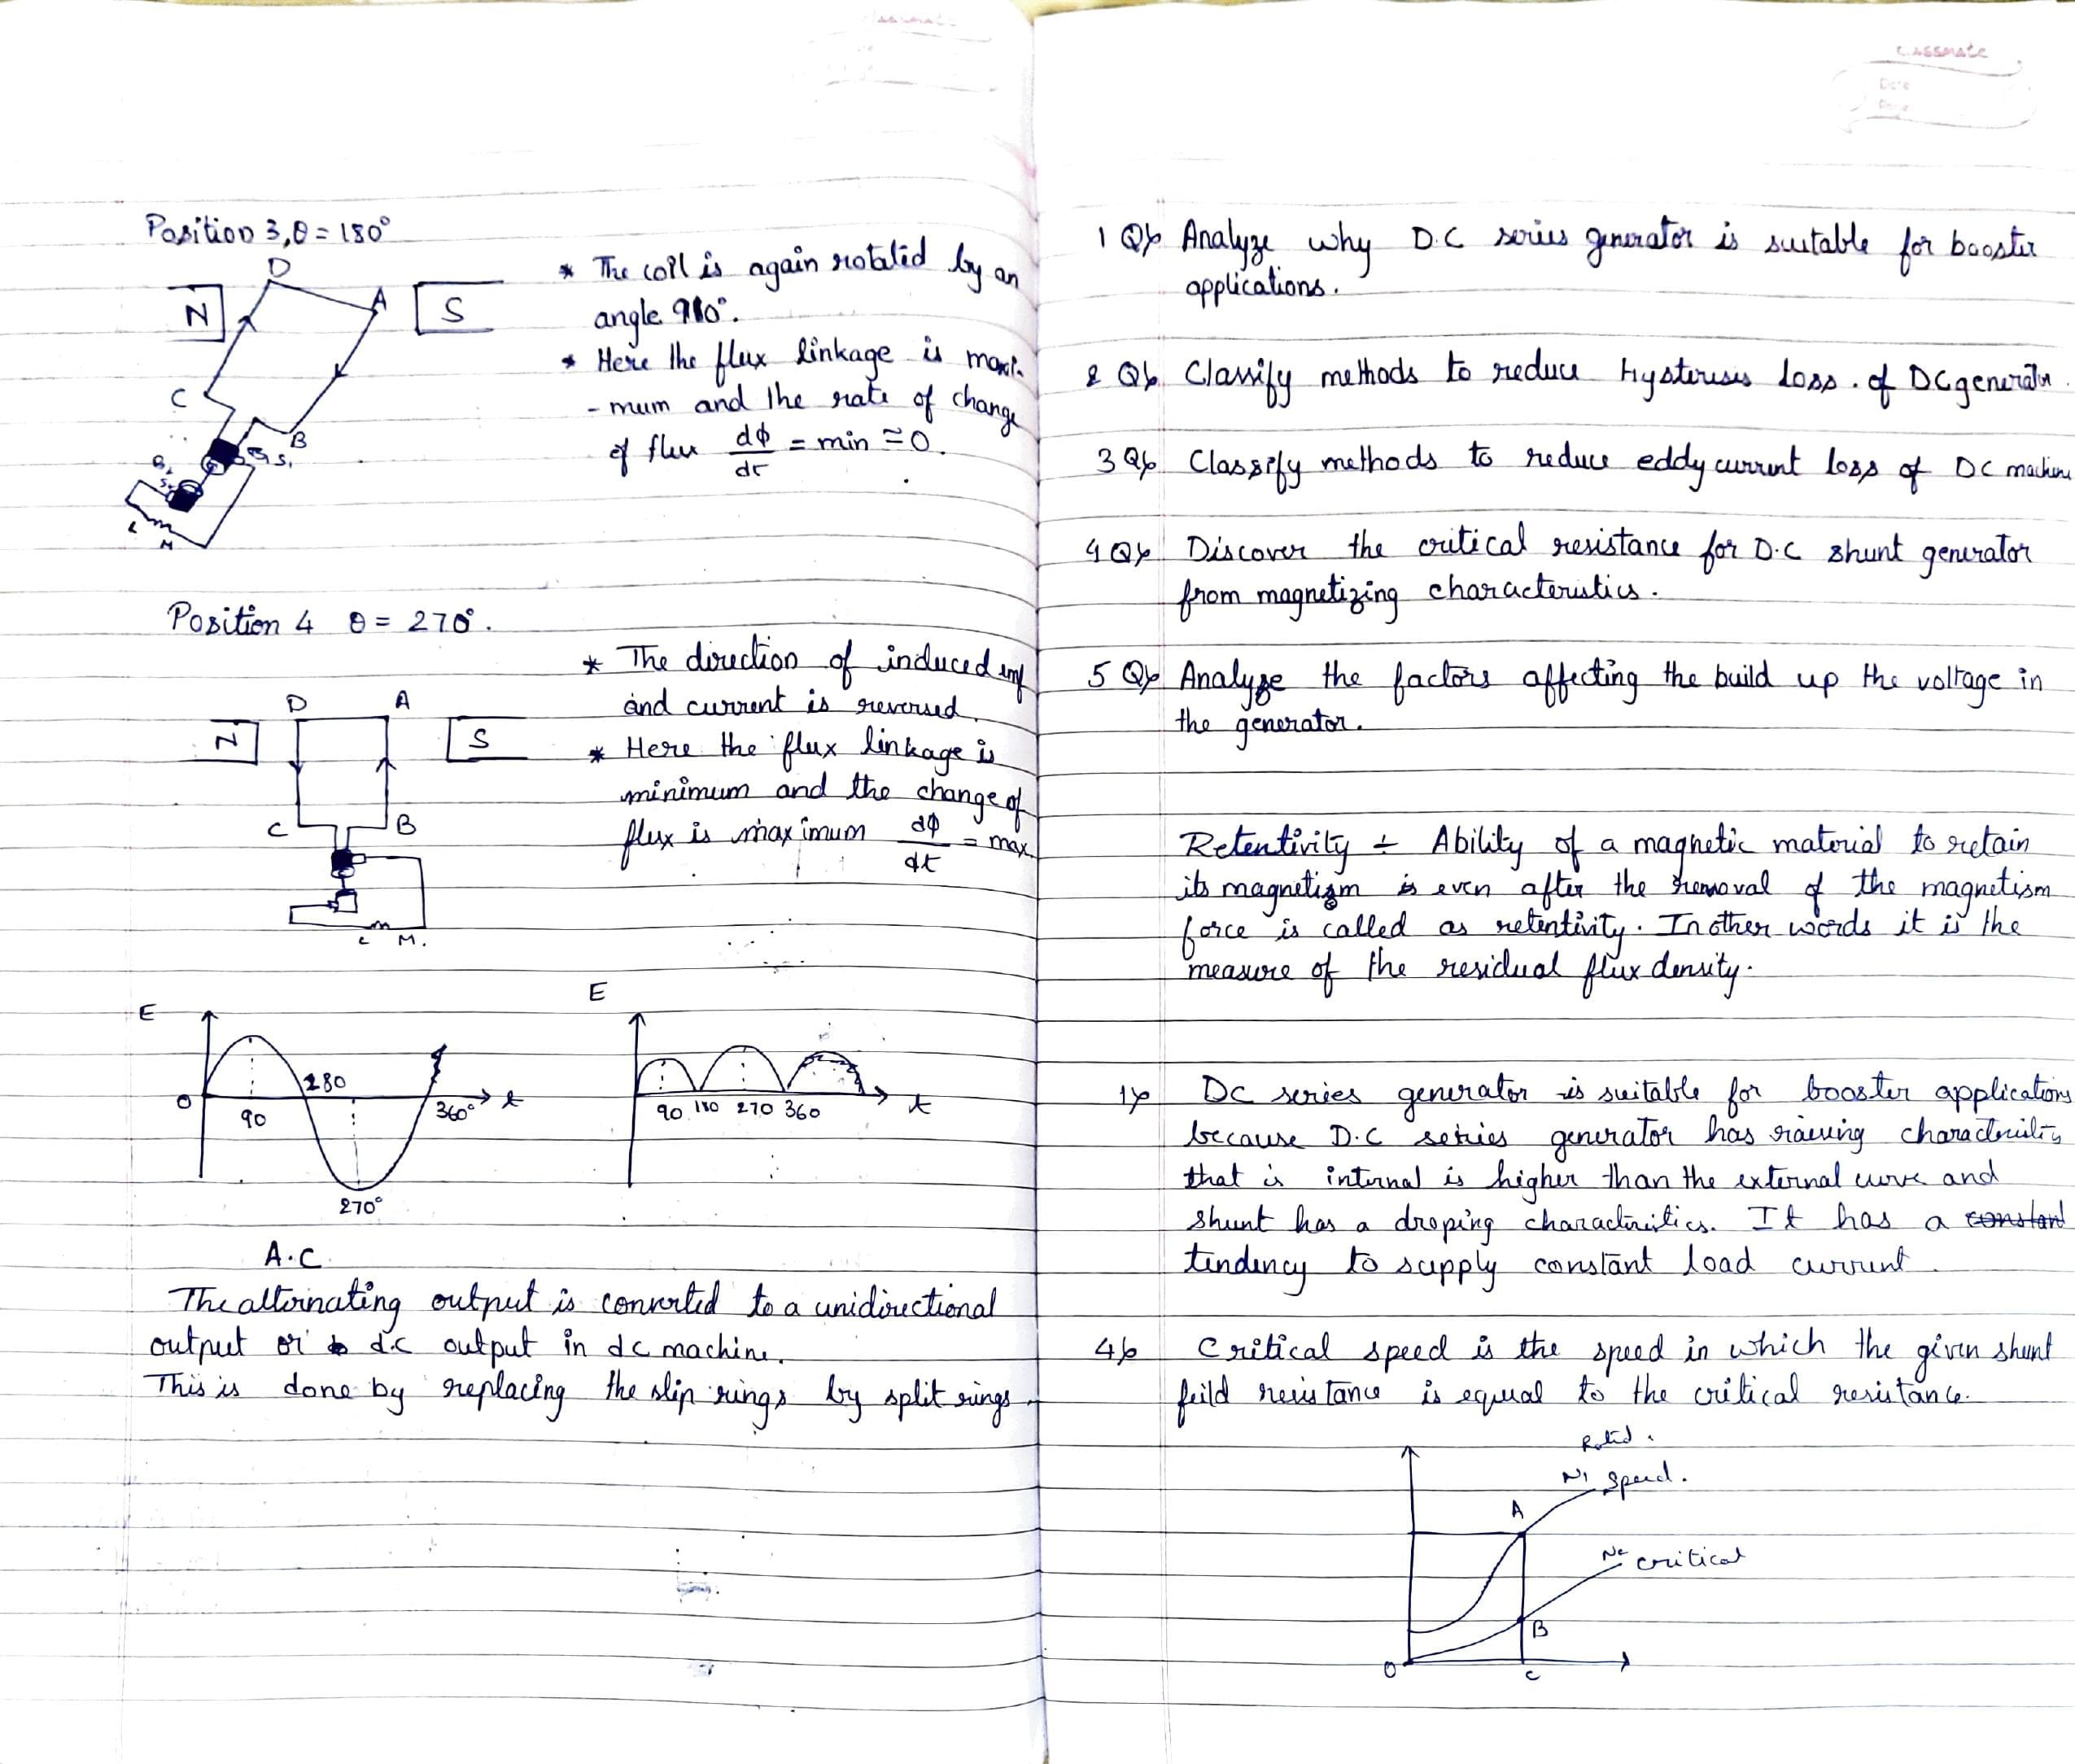 Position 3, θ = 180°
D
A
N
S
C
B
S₁
L
M
* The coil is again rotated by an
angle 90°.
* Here the flux linkage is maxi-
- mum and the rate of change
of flux dϕ/dt = min ≅ 0.
Position 4 θ = 270°.
D
A
N
S
C
B
L
M.
* The direction of induced emf
and current is reversed.
* Here the flux linkage is
minimum and the change of
flux is maximum dϕ/dt = max.
E
0
90
180
270°
360°
t
E
90 180 270 360
t
A.C
The alternating output is converted to a unidirectional
output or dc output in dc machine.
This is done by replacing the slip rings by split rings.
classmate
Date
Page
1 Q) Analyze why D.C series generator is suitable for booster
applications.
2 Q) Classify methods to reduce Hysterisis Loss. of DC generator.
3 Q) Classify methods to reduce eddy current loss of DC machine
4 Q) Discover the critical resistance for D.C shunt generator
from magnetizing characteristics.
5 Q) Analyze the factors affecting the build up the voltage in
the generator.
Retentivity ÷ Ability of a magnetic material to retain
its magnetism even after the removal of the magnetism
force is called as retentivity. In other words it is the
measure of the residual flux density.
1) DC series generator is suitable for booster applications
because D.C series generator has raising characteristics
that is internal is higher than the external curve and
shunt has a droping characteristics. It has a constant
tendency to supply constant load current.
4) Critical speed is the speed in which the given shunt
feild resistance is equal to the critical resistance.
Rated.
N₁ speed.
A
Nc critical
B
O
C